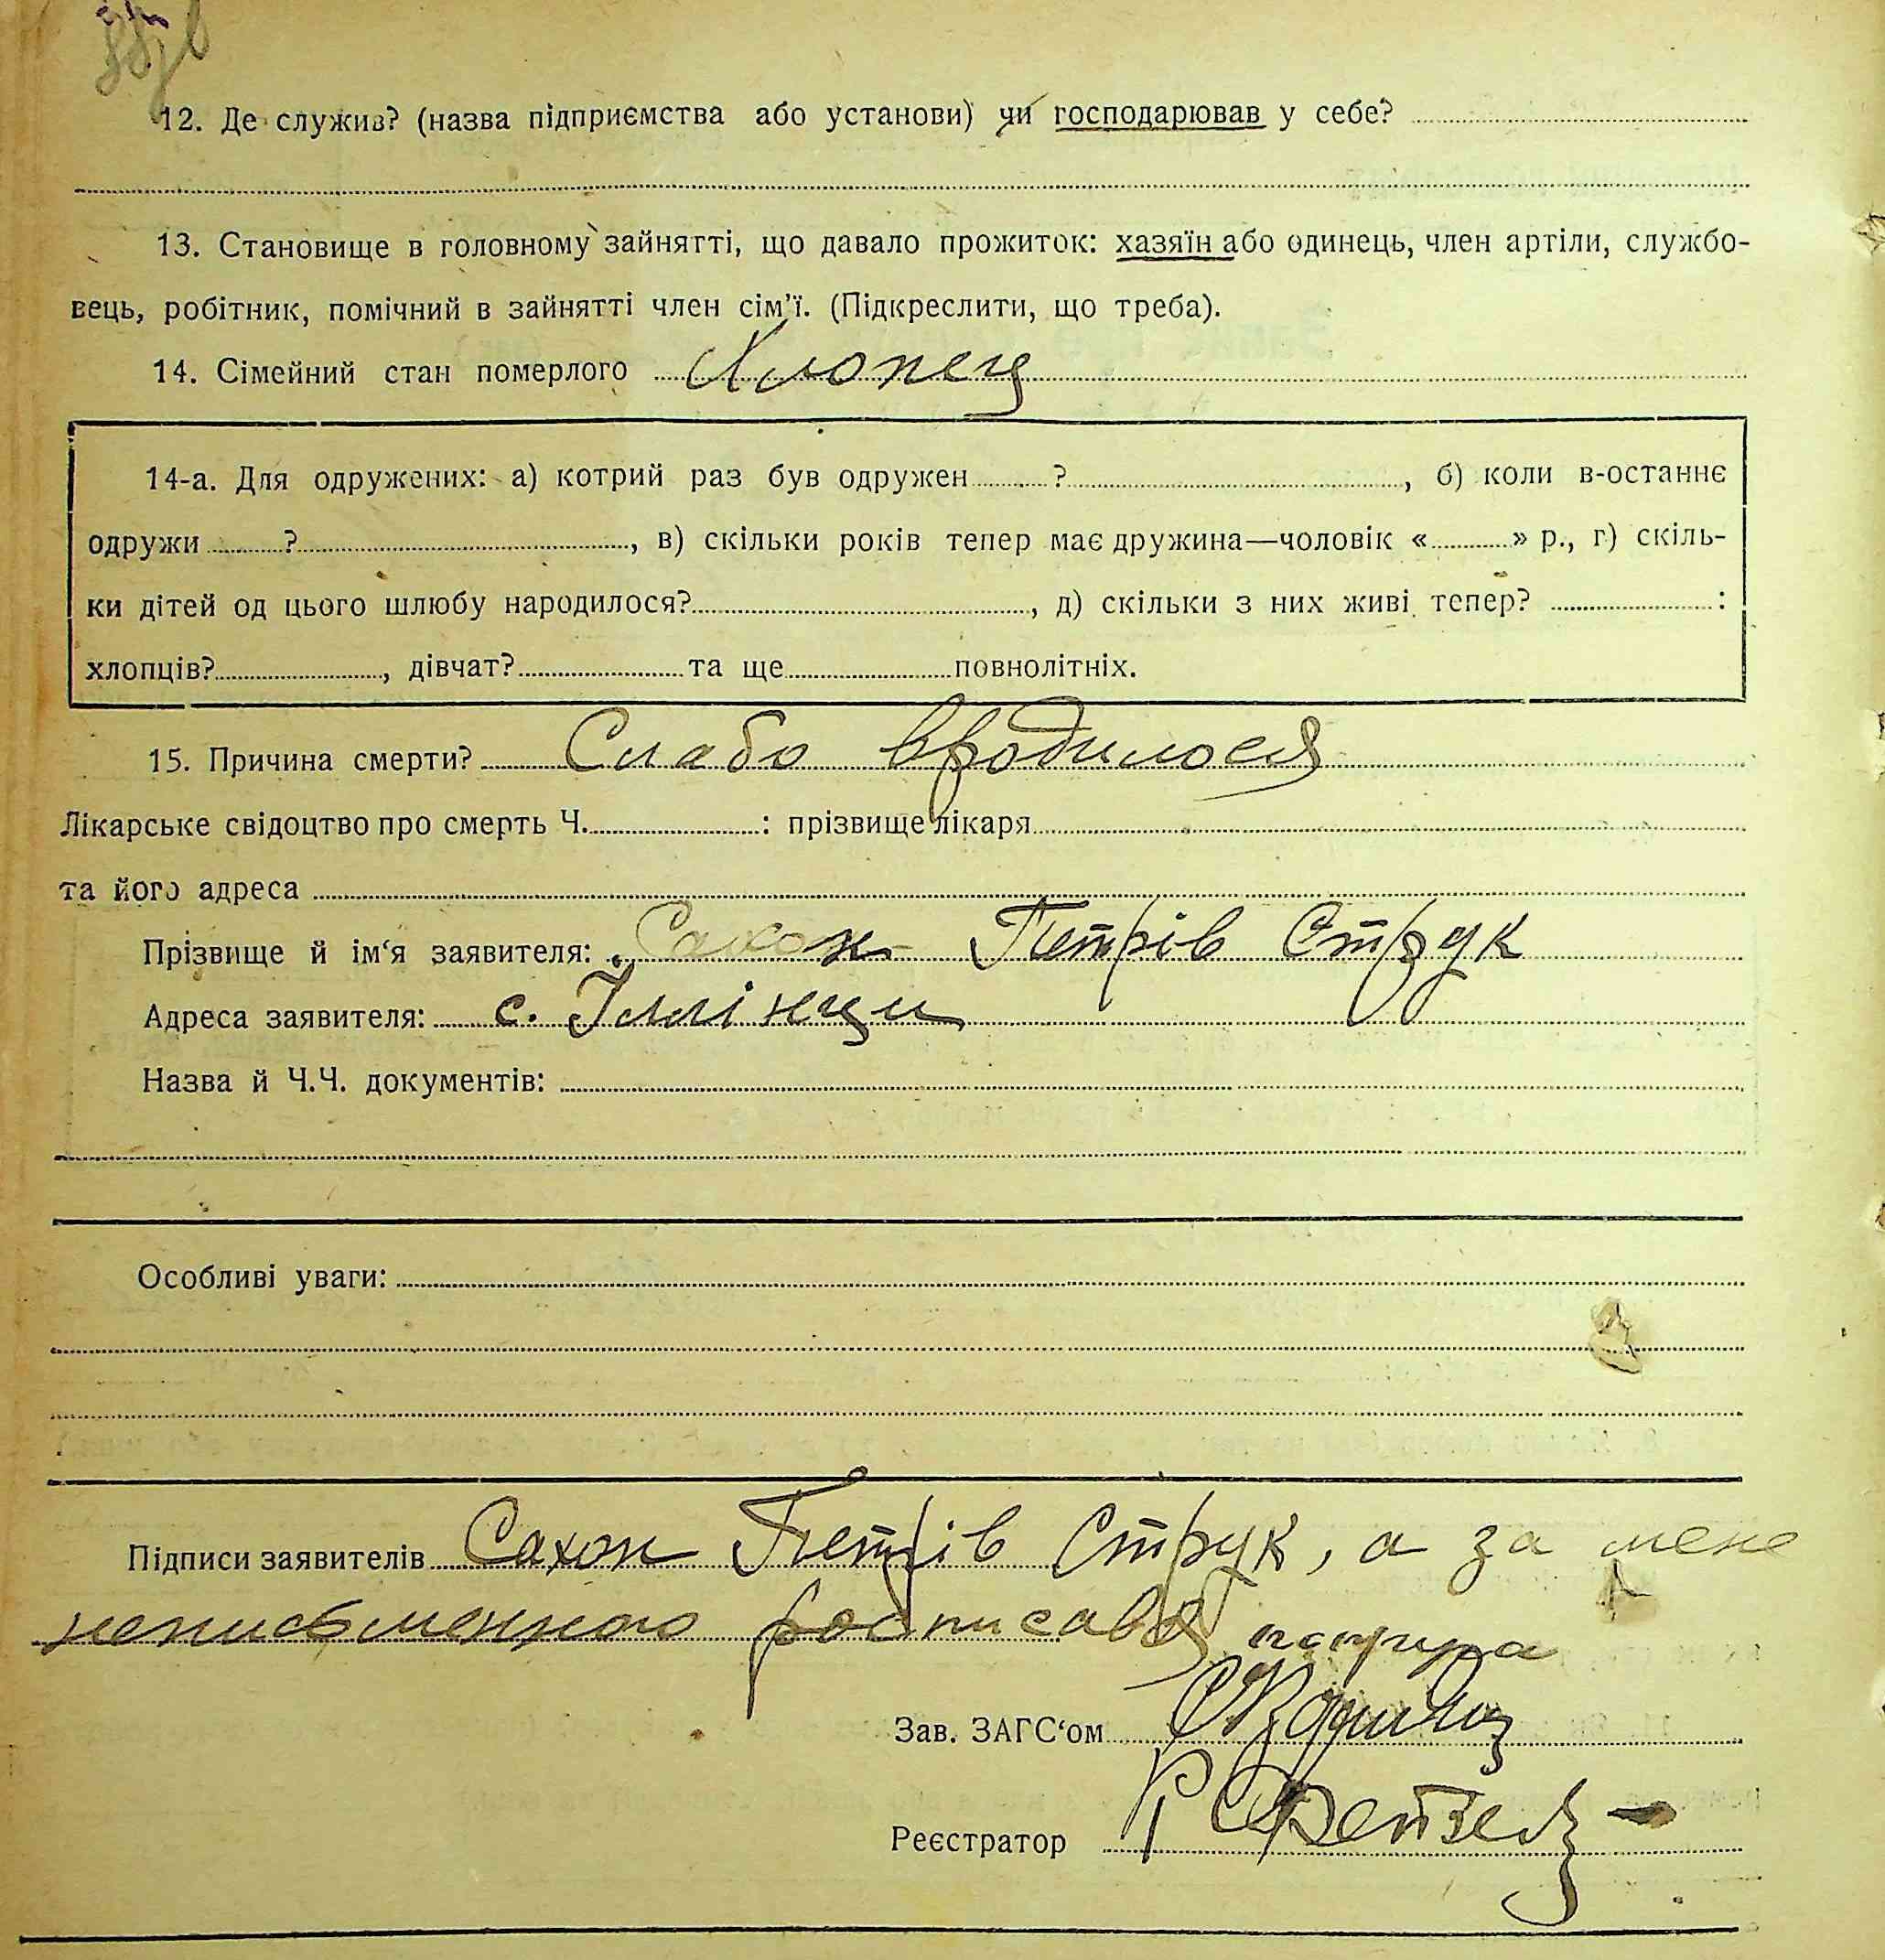 12. Де служив? (назва підприємства або установи) чи господарював у себе?
13. Становище в головному зайнятті, що давало прожиток: хазяїн або одинець, член артіли, службо-
вець, робітник, помічний в зайнятті член сім'ї. (Підкреслити, що треба).
14. Сімейний стан померлого Хлопец
14-а. Для одружених: а) котрий раз був одружен ? , б) коли в-останнє
одружи ? , в) скільки років тепер має дружина—чоловік « » р., г) скіль-
ки дітей од цього шлюбу народилося? , д) скільки з них живі тепер? :
хлопців? , дівчат? та ще повнолітніх.
15. Причина смерти? Слабо вродилося
Лікарське свідоцтво про смерть Ч. : прізвище лікаря
та його адреса
Прізвище й ім'я заявителя: Сахон Петрів Струк
Адреса заявителя: с. Іллінци
Назва й Ч.Ч. документів:
Особливі уваги:
Підписи заявителів Сахон Петрів Струк, а за мене
неписьменного росписавсь
Зав. ЗАГС'ом
Реєстратор